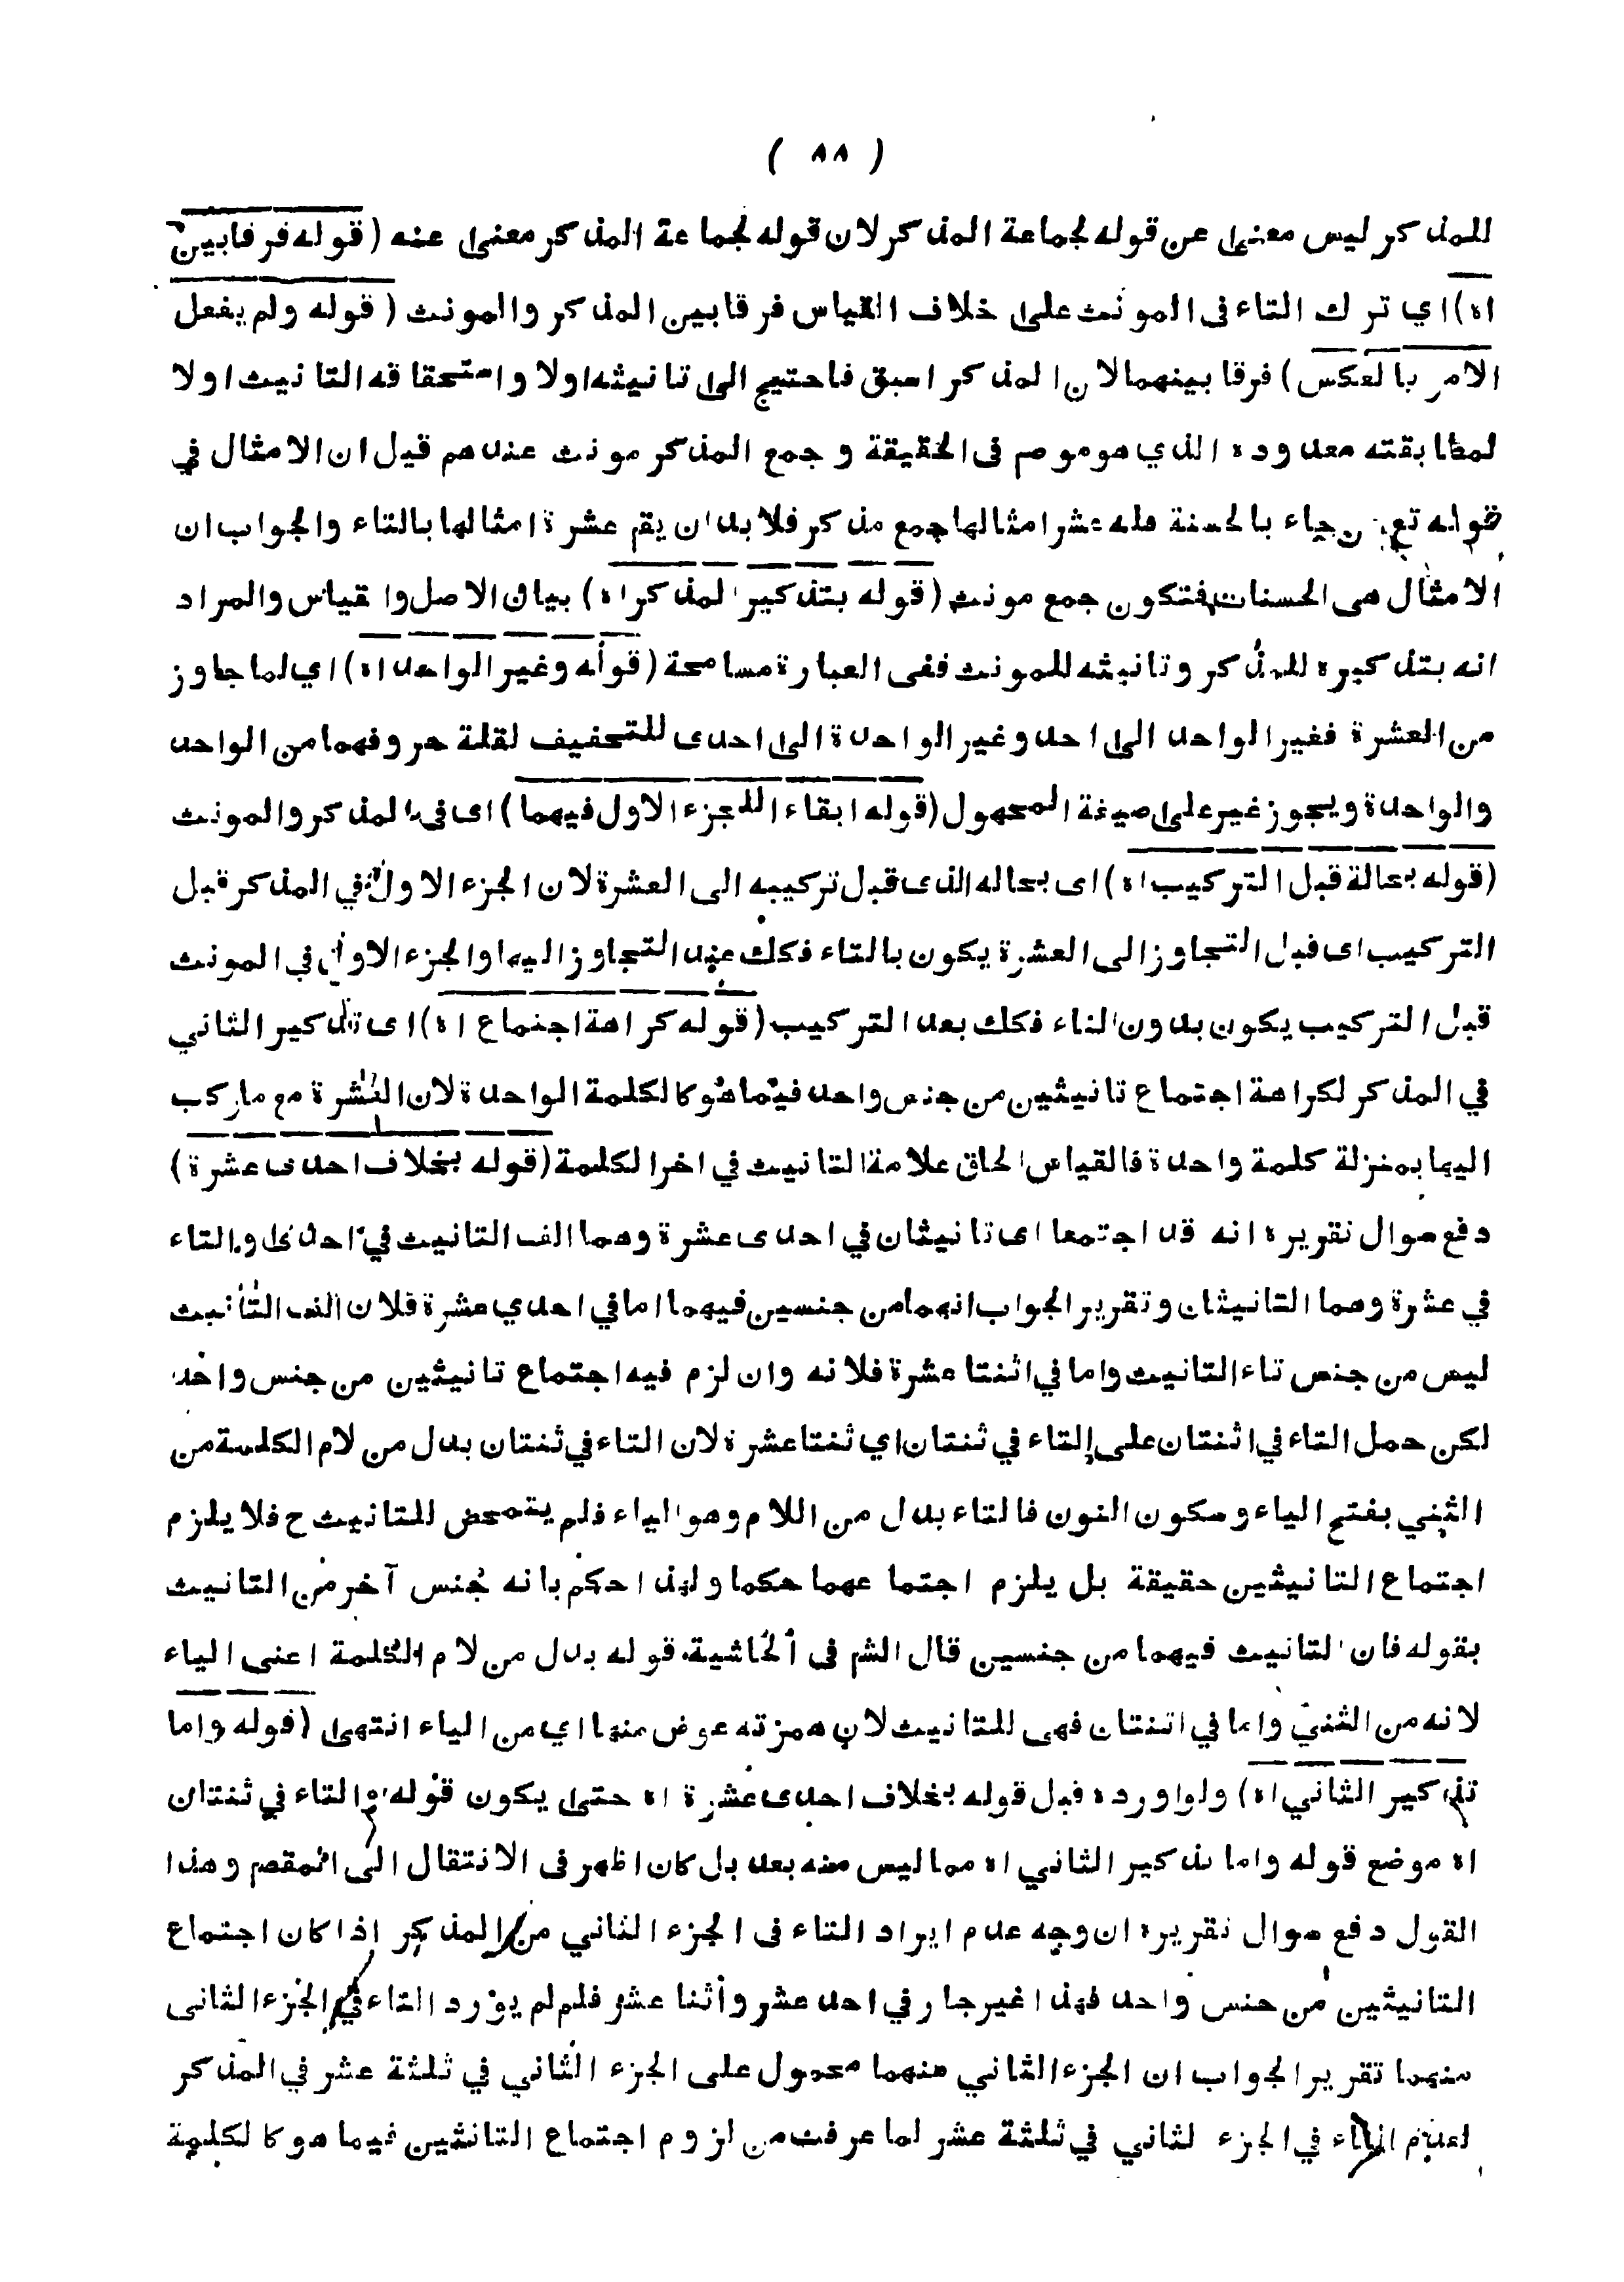 ( ٨٨ )
للمذكر ليس معنى عن قوله لجماعة المذكر لان قوله لجماعة المذكر معنى عنه ( قوله فرقا بين
اه ) اي ترك التاء فى المونث على خلاف القياس فرقا بين المذكر والمونث ( قوله ولم يفعل
الامر بالعكس ) فرقا بينهما لان المذكر اسبق فاحتيج الى تانيثه اولا واستحقاقه التانيث اولا
لمطابقته معدوده الذي هو موصم فى الحقيقة و جمع المذكر مونث عندهم قيل ان الامثال في
قوله تع جاء بالحسنة فله عشر امثالها جمع مذكر فلا بد ان يقم عشرة امثالها بالتاء والجواب ان
الامثال هى الحسنات فتكون جمع مونث ( قوله بتذكير المذكر اه ) بيان الاصل والقياس والمراد
انه بتذكيره للمذكر وتانيثه للمونث ففى العبارة مسامحة ( قوله وغير الواحد اه ) اي لما جاوز
من العشرة فغير الواحد الى احد وغير الواحدة الى احدى للتخفيف لقلة حروفهما من الواحد
والواحدة ويجوز غير على صيغة المجهول ( قوله ابقاء للجزء الاول فيهما ) اى فى المذكر والمونث
( قوله بحالة قبل التركيب اه ) اى بحاله الذى قبل تركيبه الى العشرة لان الجزء الاول في المذكر قبل
التركيب اى قبل التجاوز الى العشرة يكون بالتاء فكك عند التجاوز اليها والجزء الاول في المونث
قبل التركيب يكون بدون التاء فكك بعد التركيب ( قوله كراهة اجتماع اه ) اى تذكير الثاني
في المذكر لكراهة اجتماع تانيثين من جنس واحد فيما هو كالكلمة الواحدة لان العشرة مع ما ركب
اليها بمنزلة كلمة واحدة فالقياس الحاق علامة التانيث في اخر الكلمة ( قوله بخلاف احدى عشرة )
دفع سوال تقريره انه قد اجتمعا اى تانيثان في احدى عشرة وهما الف التانيث في احدى والتاء
في عشرة وهما التانيثان وتقرير الجواب انهما من جنسين فيهما اما في احدي عشرة فلان الف التانيث
ليس من جنس تاء التانيث واما في اثنتا عشرة فلانه وان لزم فيه اجتماع تانيثين من جنس واحد
لكن حمل التاء في اثنتان على التاء في ثنتان اي ثنتا عشرة لان التاء في ثنتان بدل من لام الكلمة من
الثني بفتح الياء وسكون النون فالتاء بدل من اللام وهو الياء فلم يتمحض للتانيث ح فلا يلزم
اجتماع التانيثين حقيقة بل يلزم اجتماعهما حكما ولهذا حكم بانه جنس آخر من التانيث
بقوله فان التانيث فيهما من جنسين قال الشم فى الحاشية قوله بدل من لام الكلمة اعنى الياء
لانه من الثني واما في اثنتان فهى للتانيث لان همزته عوض منها اي من الياء انتهى ( قوله واما
تذكير الثاني اه ) ولو اورده قبل قوله بخلاف احدى عشرة اه حتى يكون قوله والتاء في ثنتان
اه موضع قوله واما تذكير الثاني اه مما ليس منه بعد بل كان اظهر فى الانتقال الى المقصم وهذا
القول دفع سوال تقريره ان وجه عدم ايراد التاء فى الجزء الثاني من المذكر اذا كان اجتماع
التانيثين من جنس واحد فهذا غير جار في احد عشر واثنا عشر فلم لم يورد التاء في الجزء الثانى
منهما تقرير الجواب ان الجزء الثاني منهما محمول على الجزء الثاني في ثلثة عشر في المذكر
لعدم التاء في الجزء الثاني في ثلثة عشر لما عرفت من لزوم اجتماع التانثين فيما هو كالكلمة